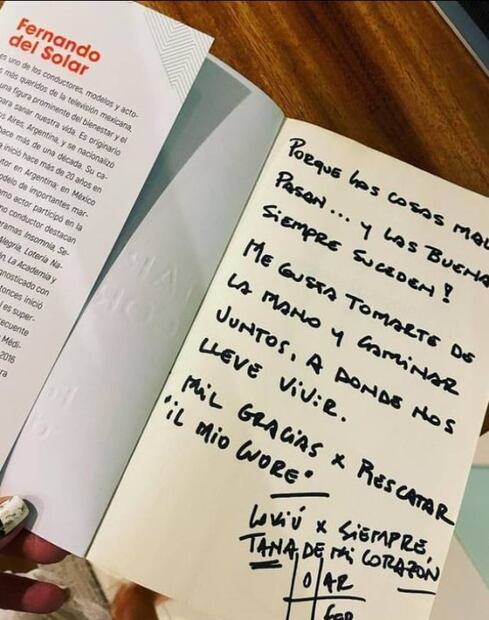 Fernando
del Solar
es uno de los conductores, modelos y acto-
s más queridos de la televisión mexicana,
una figura prominente del bienestar y el
para sanar nuestra vida. Es originario
os Aires, Argentina, y se nacionalizó
hace más de una década. Su ca-
a inició hace más de 20 años en
utor, en Argentina; en México
odelo de importantes mar-
omo actor participó en la
mo conductor destacan
ramas Insomnia, Se-
Alegría, Lotería Na-
n, La Academia y
gnosticado con
tonces inició
l es super-
recuente
Médi-
2016
ra
PORQUE LAS COSAS MAL
PASAN... Y LAS BUENA
SIEMPRE SUCEDEN!
ME GUSTA TOMARTE DE
LA MANO Y CAMINAR
JUNTOS, A DONDE NOS
LLEVE VIVIR.
MIL GRACIAS X RESCATAR
"IL MIO CUORE"
LOVIÚ X SIEMPRE,
TANA DE MI CORAZÓN
O AR
FER